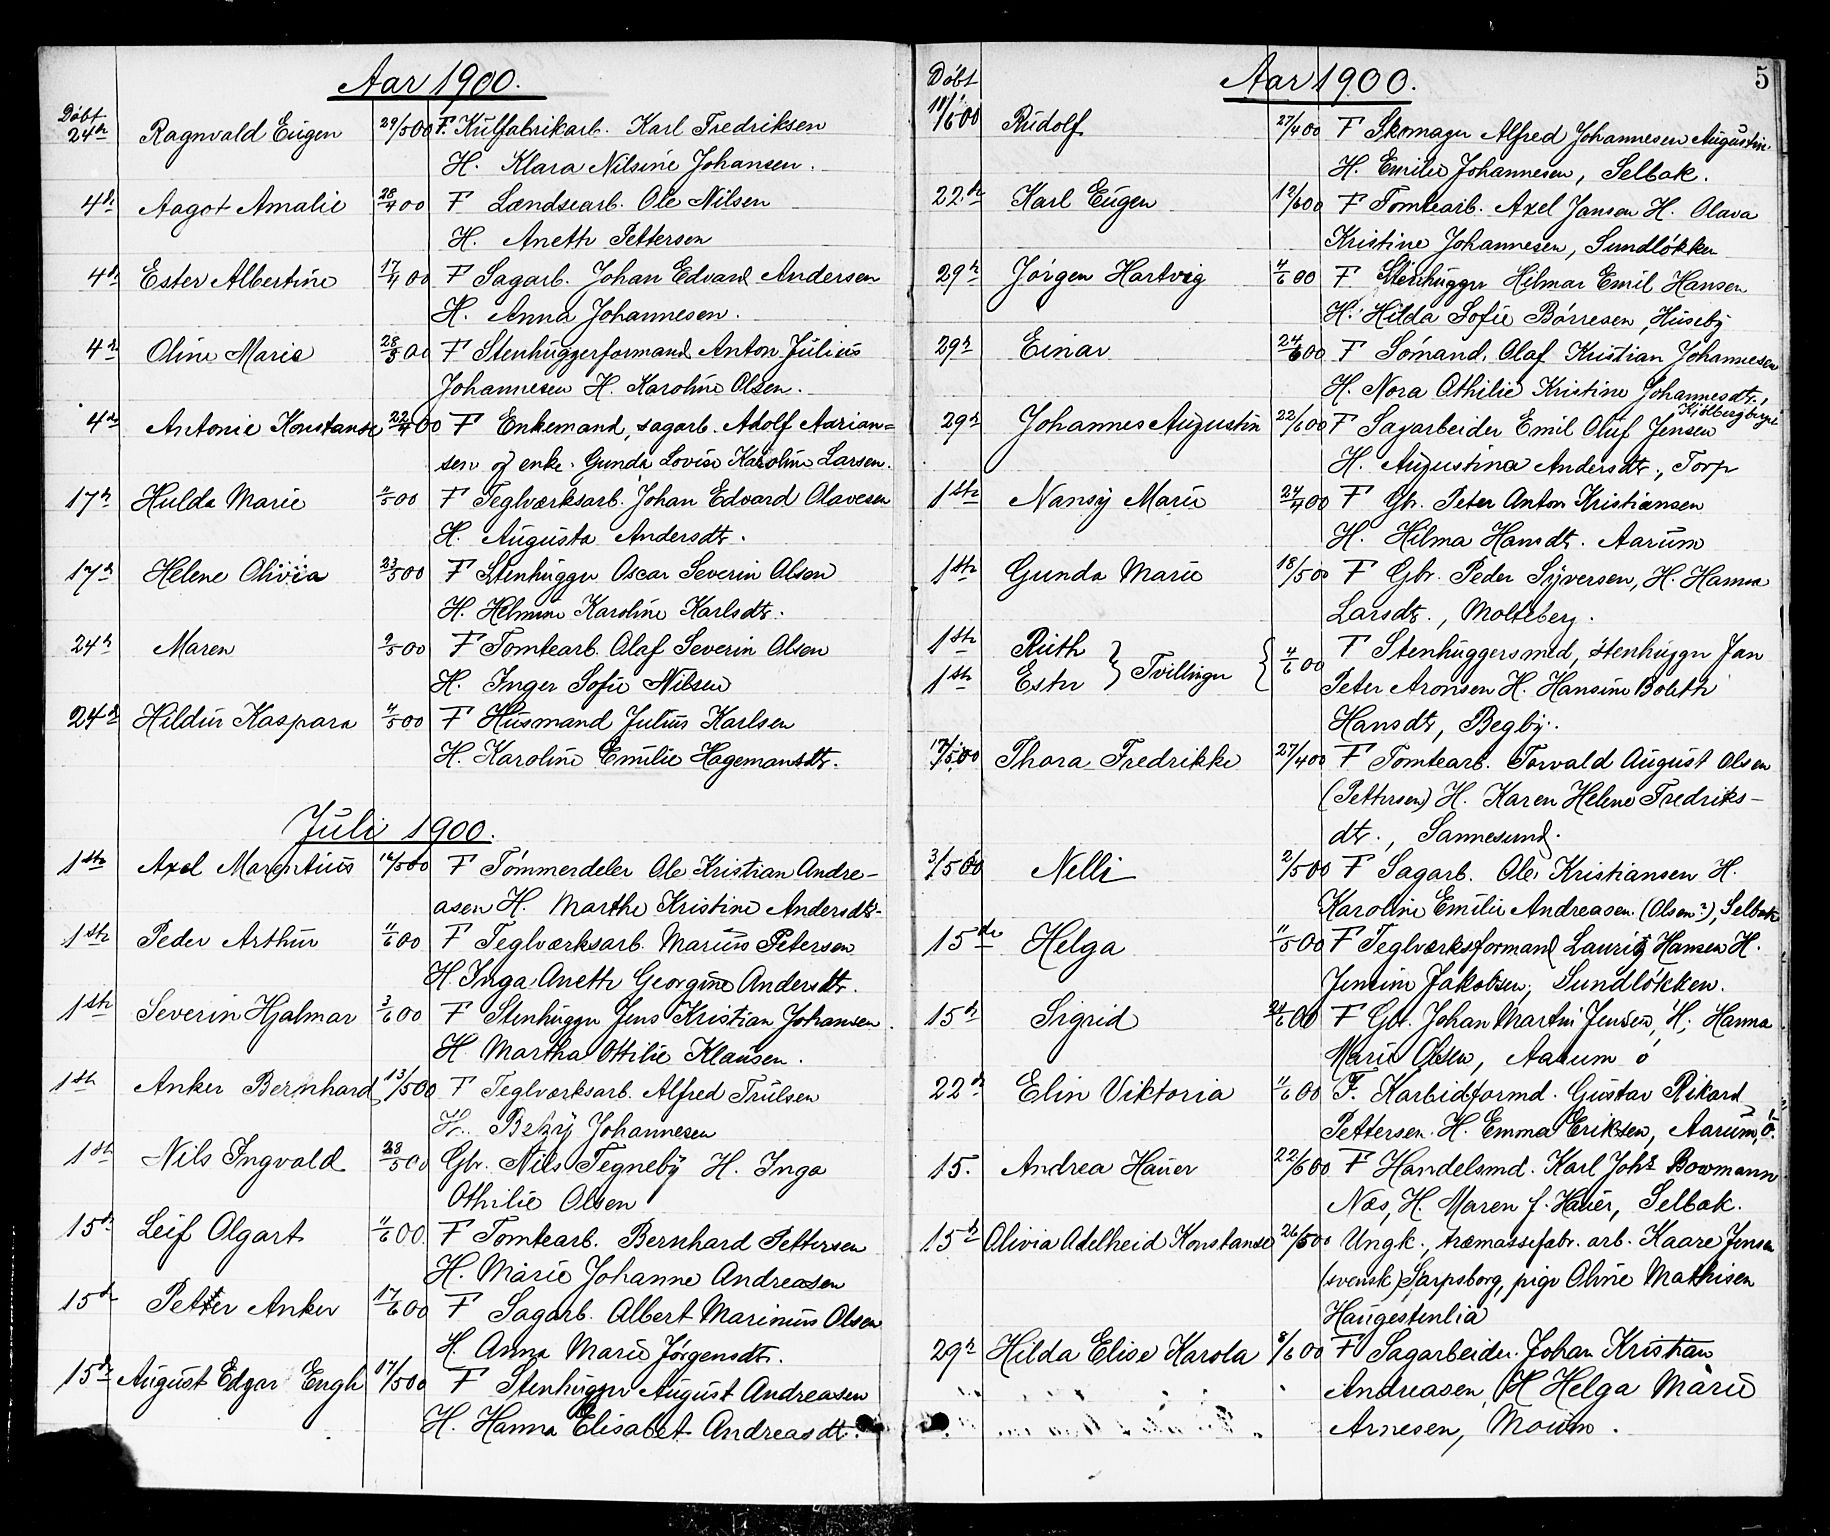 Aar 1900.
Döbt
24de Ragnvald Eugen 29/5 00 F. Kulfabrikarb. Karl Fredriksen
H. Klara Nilsine Johansen.
4de Aagot Amalie 28/4 00 F Lændsearb. Ole Nilsen
H. Anethe Pettersen
4de Ester Albertine 17/4 00 F Sagarb. Johan Edvard Andersen
H. Anna Johannesen.
4de Oline Marie 28/3 00 F Stenhuggerformand Anton Julius
Johannesen H. Karoline Olsen.
4de Antonie Konstanse 22/4 00 F Enkemand, sagarb. Adolf Adrian=
sen og enke. Gunda Lovise Karoline Larsen.
17de Hulda Marie 4/5 00 F Teglværksarb. Johan Edvard Olavesen
H. Augusta Andersdtr.
17de Helene Olivia 23/5 00 F Stenhugger Oscar Severin Olsen
H. Helmine Karoline Karlsdtr.
24de Maren 2/5 00 F Tomtearb. Olaf Severin Olsen
H. Inger Sofie Nilsen
24de Hildur Kaspara 4/5 00 F Husmand Julius Karlsen
H. Karoline Emilie Hagemansdtr.
Juli 1900.
1ste Axel Marentius 16/5 00 F Tömmerdeler Ole Kristian Andre-
asen H. Marthe Kristine Andersdtr.
1ste Peder Arthur 4/6 00 F Teglværksarb. Marius Petersen
H. Inga Anethe Georgine Andersdtr.
1ste Severin Hjalmar 3/6 00 F Stenhugger Jens Kristian Johansen.
H. Martha Otilie Klausen.
1ste Anker Bernhard 13/5 00 F Teglværksarb. Alfred Trulsen
H. Betzy Johannesen
1ste Nils Ingvald 28/5 00 Gbr. Nils Tegneby H. Inga
Othilie Olsen
15de Leif Olgart 4/6 00. F Tomtearb. Bernhard Pettersen
H. Marie Johanne Andreasen
15de Petter Anker 17/6 00 F Sagarb. Albert Marinius Olsen
H. Anna Marie Jörgensdtr.
15de August Edgar Engh 17/5 00 F Stenhugger August Andreasen
H. Hanna Elisabet Andreasdtr.
Aar 1900. 5
Döbt
/6 00 Rudolf 27/4 00 F Skomager Alfred Johannesen Augustin.
H. Emilie Johannesen, Selbak.
22de Karl Eugen 12/6 00 F Tomtearb. Axel Jansen H. Olava
Kristine Johannesen, Sundlökken
29de Jörgen Hartvig 4/6 00 F Stenhugger Hilmar Emil Hansen
H. Hilda Sofie Börresen, Huseby
29de Einar 24/6 00 F Sömand. Olaf Kristian Johannesen
H. Nora Othilie Kristine Johannesdtr.,
Kjölbergberget
29de Johannes Augustin 22/6 00 F Sagarbeider Emil Oluf Jensen
H. Augustina Andersdtr., Torp
1ste Nansy Marie 24/4 00 F Gbr. Peter Anton Kristiansen
H. Hilma Hansdtr. Aarum
1ste Gunda Marie 18/5 00 F Gbr. Peder Syversen, H. Hanna
Larsdtr., Molteberg.
1ste Ruth
1ste Ester } Tvillinger { 4/6 00 F Stenhuggersmed, stenhugger Jan
Peter Aronsen H. Hansine Bolethe
Hansdtr, Begby.
17/5 00 Thora Fredrikke 27/4 00 F Tomtearb. Torvald August Olsen
(Pettersen) H. Karen Helene Fredriks-
dtr., Sannesund.
3/5 00 Nelli 2/5 00 F Sagarb. Ole Kristiansen H.
Karoline Emilie Andreasen (Olsen?), Selbak
15de Helga 4/5 00 F Teglværksformand Laurits Hansen H.
Jensine Jakobsen, Sundlökken.
15de Sigrid 24/6 00 F Gbr. Johan Martin Jensen, H. Hanna
Marie Olsen, Aarum ö
22de Elin Viktoria 4/6 00 F. Karbidformd. Gustav Rikard
Pettersen. H. Emma Eriksen, Aarum, ö.
15. Andrea Hauer 22/6 00 F Handelsmd. Karl Johs Bowmann
Næs, H. Maren f. Hauer, Selbak.
15de Olivia Adelheid Konstanse 26/5 00 Ungk., træmassefabr. arb. Kaare Jensen
(svensk) Sarpsborg, pige Oline Mathisen
Haugestenlia
29de Hilda Elise Karola 8/6 00 F Sagarbeider Johan Kristian
Andreasen, H Helga Marie
Arnesen, Moum.